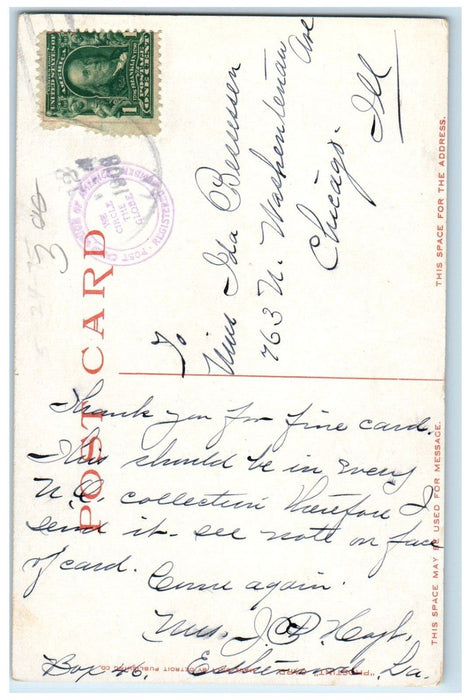 UNITED STATES OF AMERICA
1706 FRANKLIN 1790
POSTAGE
1 ONE CENT 1
POST CARD
WE CIRCLE THE GLOBE
To
Miss Ida
763 N. Washentenaw Ave
Chicago.
Ill
THIS SPACE FOR THE ADDRESS.
Thank you for fine card.
This should be in every
U.C. collection therefore I
send it - see note on face
of card.
Come again.
Mrs. J. B. Hoyt,
Box 46. La.
THIS SPACE MAY BE USED FOR MESSAGE.
"PHOSTINT" CARD BY DETROIT PUBLISHING CO.